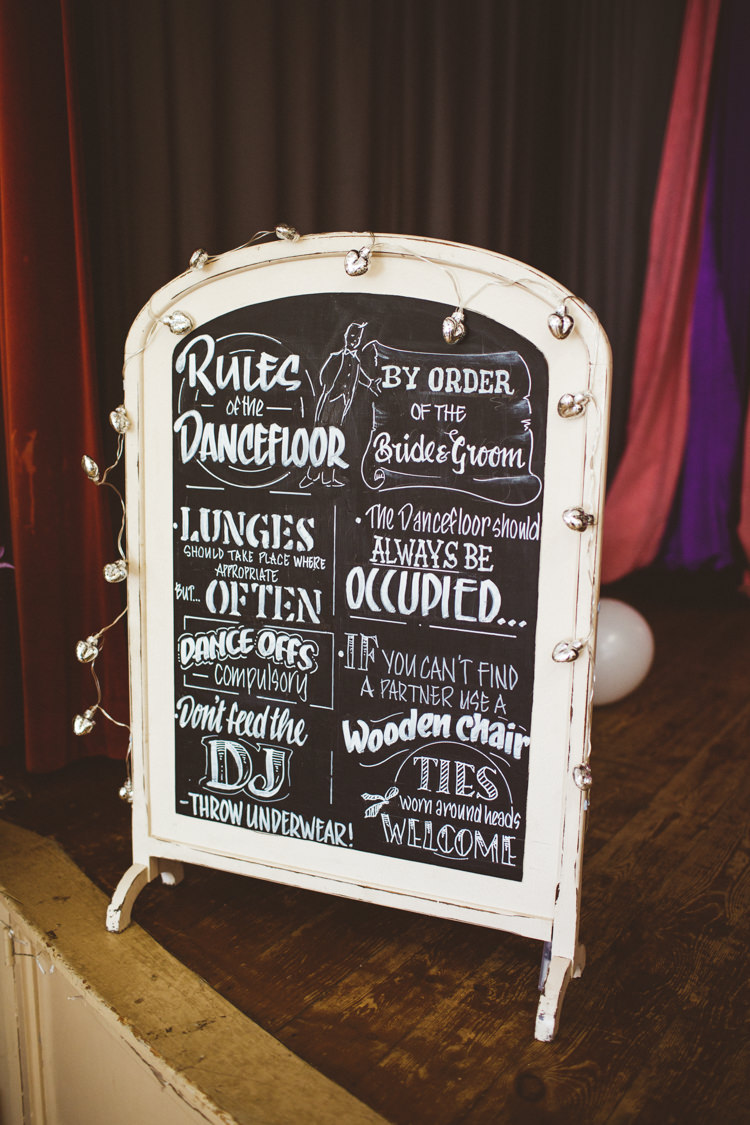 RULES
of the
DANCEFLOOR
BY ORDER
OF THE
Bride & Groom
• LUNGES
SHOULD TAKE PLACE WHERE
APPROPRIATE
BUT... OFTEN
DANCE OFFS
- compulsory
• Don't feed the
DJ
- THROW UNDERWEAR!
• The Dancefloor should
ALWAYS BE
OCCUPIED...
• IF YOU CAN'T FIND
A PARTNER USE A
Wooden chair
TIES
worn around heads
WELCOME